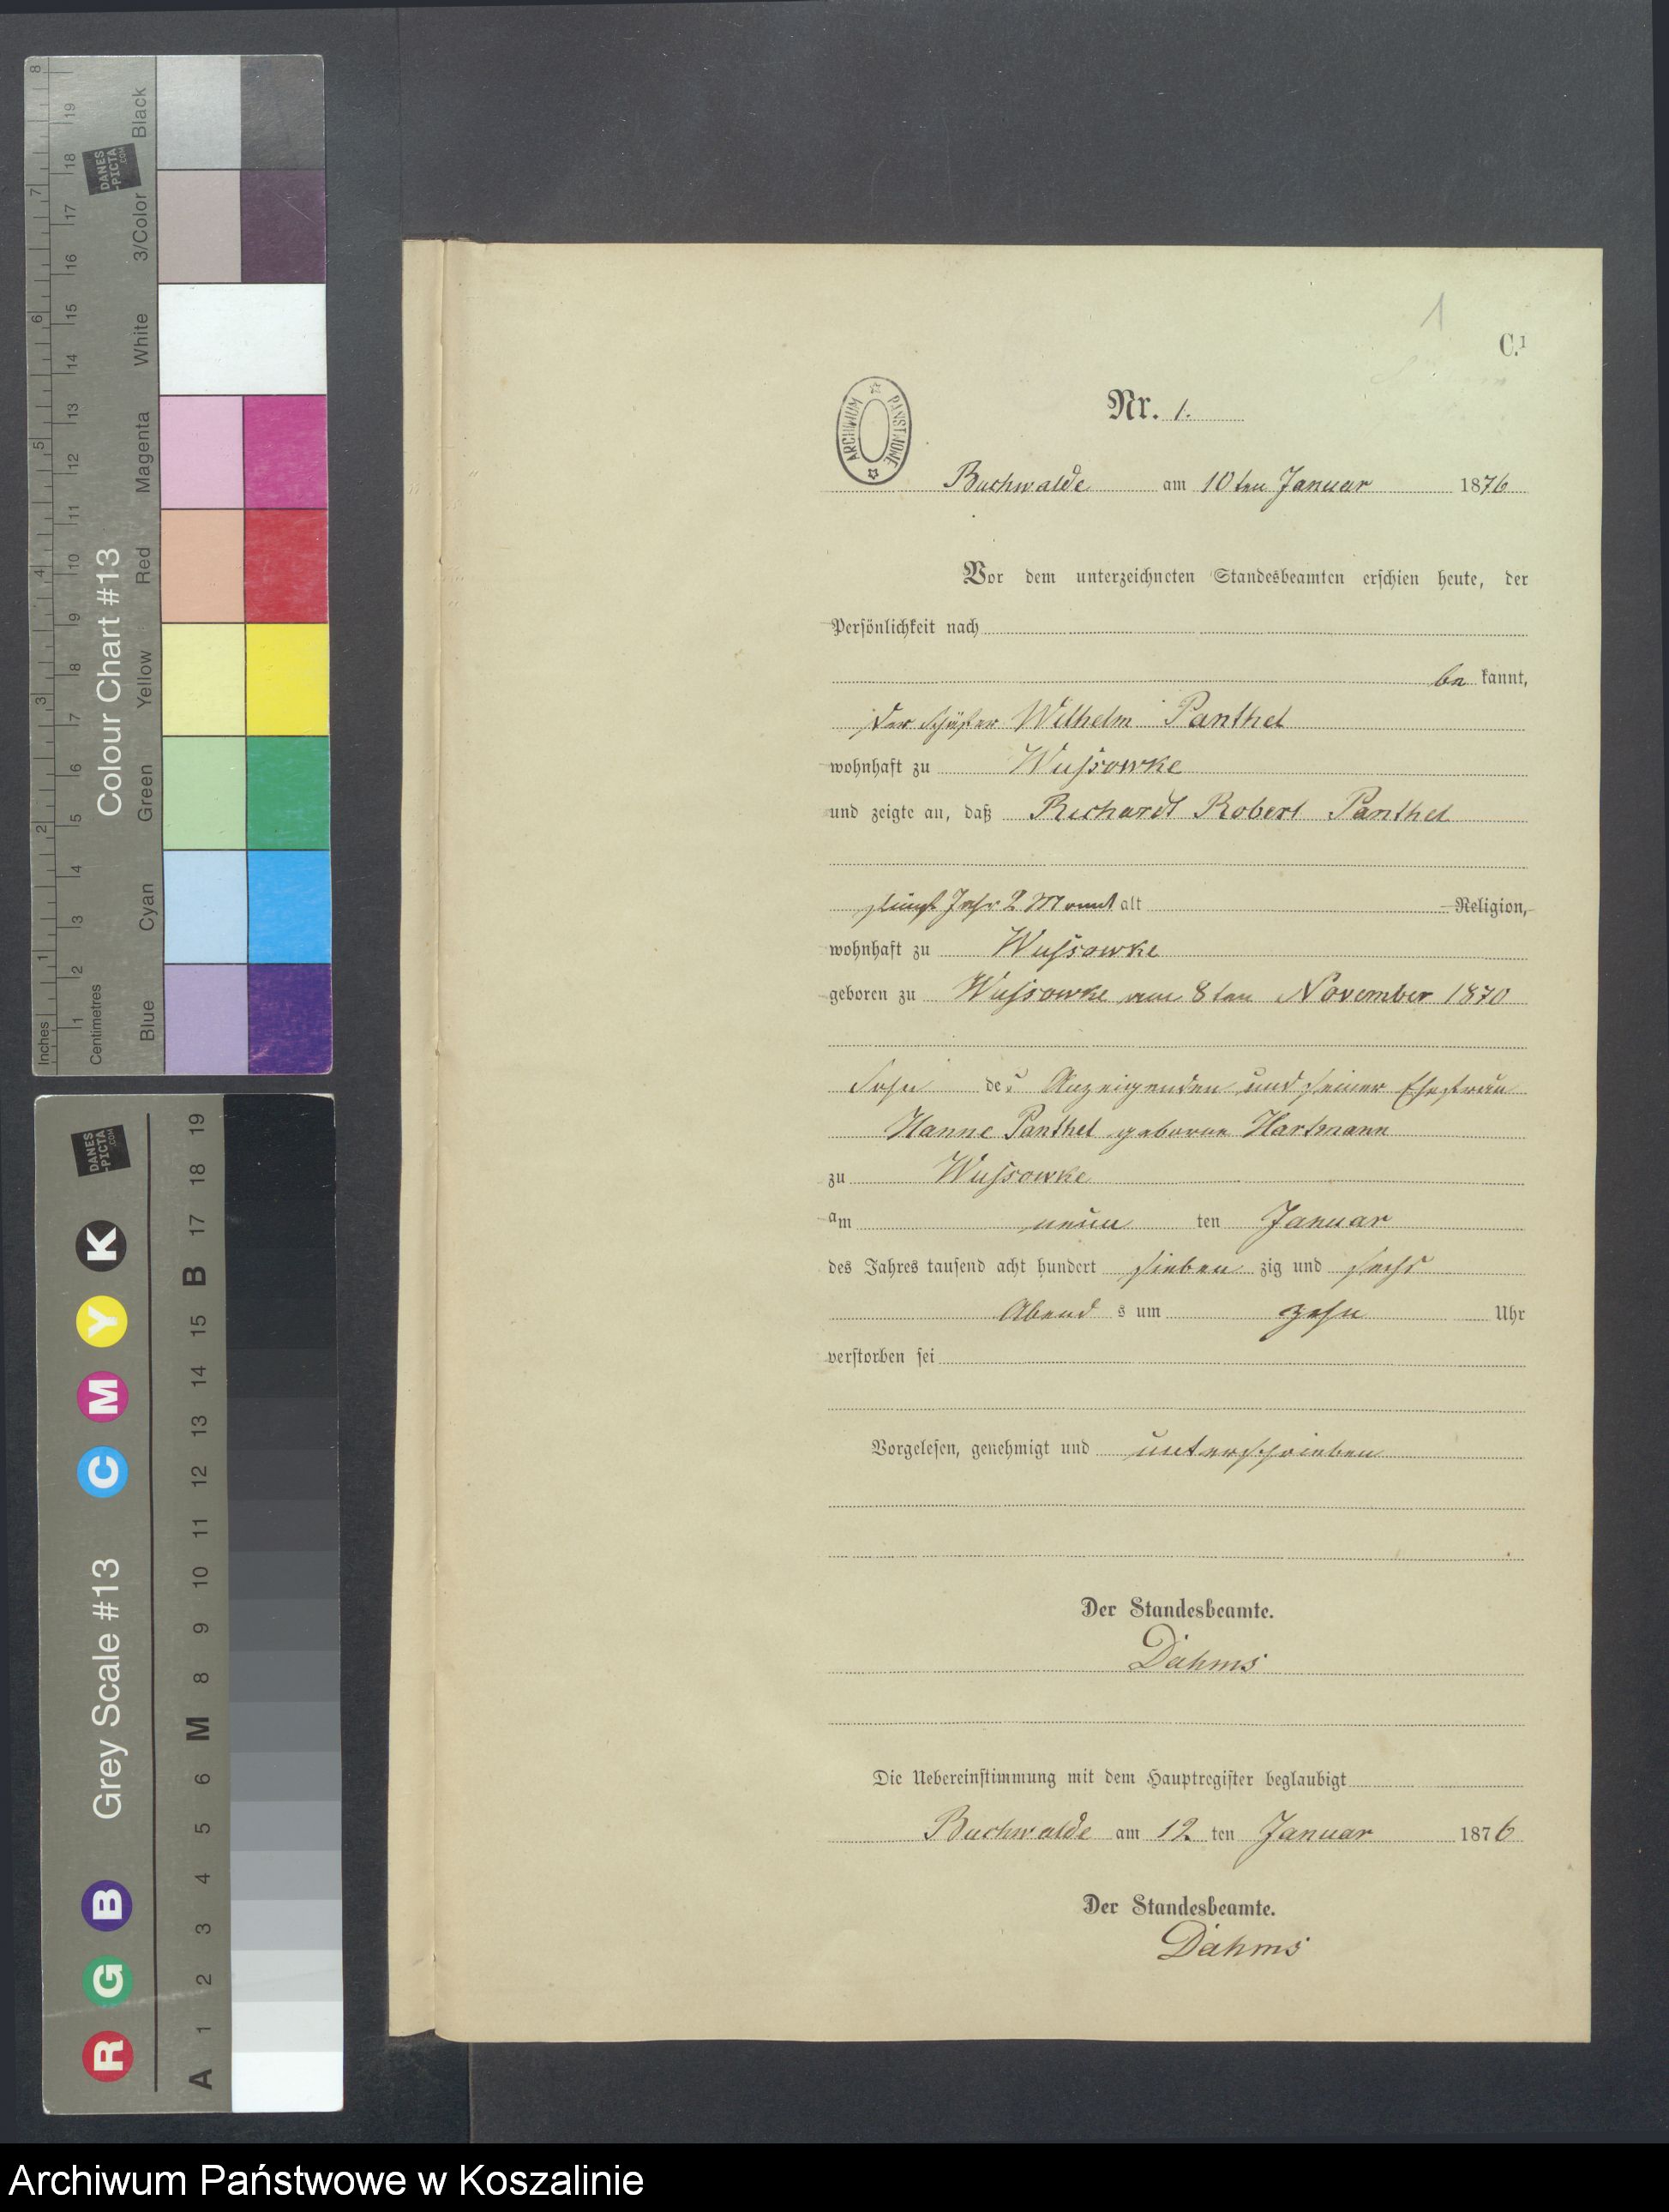 8
7
6
5
4
3
2
1
Inches
19
18
17
16
15
14
13
12
11
10
9
8
7
6
5
4
3
2
1
Centimetres
DANES
-PICTA
.COM
Colour Chart #13
Black
3/Color
White
Magenta
Red
Yellow
Green
Cyan
Blue
DANES
-PICTA
.COM
Grey Scale #13
K
Y
M
C
B
G
R
19
18
17
B
15
14
13
12
11
10
9
8
M
6
5
4
3
2
1
A
1
C.1
ARCHIWUM PAŃSTWOWE
Nr. 1.
Buchwalde am 10ten Januar 1876
Vor dem unterzeichneten Standesbeamten erschien heute, der
Persönlichkeit nach
be kannt,
der Schäfer Wilhelm Panthel
wohnhaft zu Wussowke
und zeigte an, daß Richardt Robert Panthel
fünf Jahr 2 Monat alt Religion,
wohnhaft zu Wussowke
geboren zu Wussowke am 8ten November 1870
Sohn des Anzeigenden und seiner Ehefrau
Hanne Panthel geborne Hartmann
zu Wussowke
am neun ten Januar
des Jahres tausend acht hundert sieben zig und sechs
Abend s um zehn Uhr
verstorben sei
Vorgelesen, genehmigt und unterschrieben
Der Standesbeamte.
Dahms
Die Uebereinstimmung mit dem Hauptregister beglaubigt
Buchwalde am 12. ten Januar 1876
Der Standesbeamte.
Dahms
Archiwum Państwowe w Koszalinie